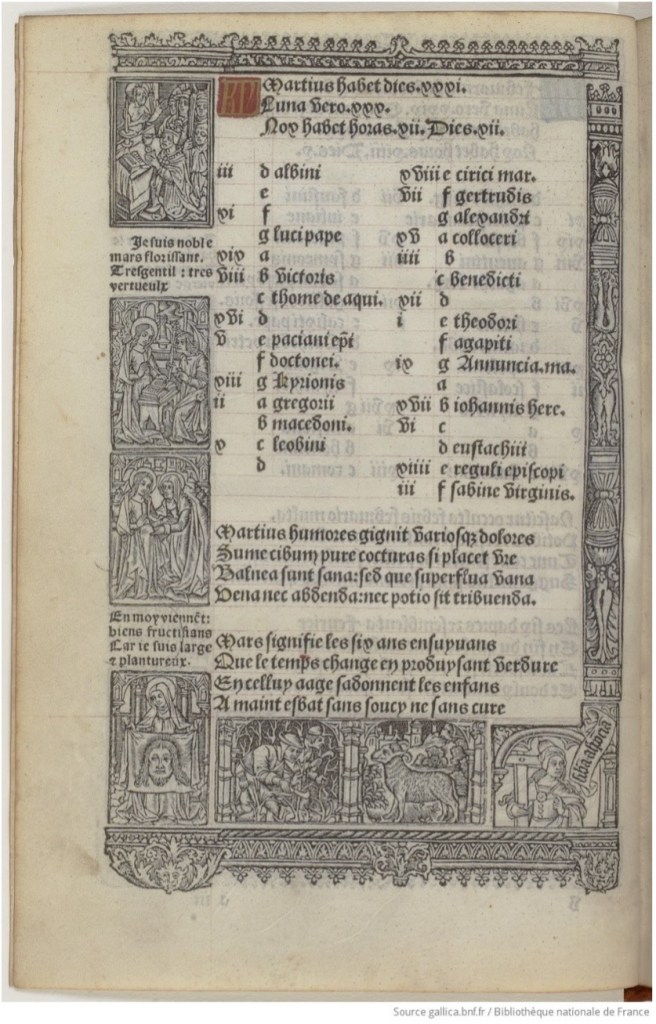 KL Martius habet dies.xxxi.
Luna vero.xxx.
Nox habet horas.xii. Dies.xii.
iii d albini
e
xi f
g luci pape
xix a
viii b victoris
c thome de aqui.
xvi d
v e paciani epi
f doctonei.
xiii g kyrionis
ii a gregorii
b macedoni.
x c leobini
d
xviii e cirici mar.
vii f gertrudis
g alexandri
xv a colloceri
iiii b
c benedicti
xii d
i e theodori
f agapiti
ix g Annuncia.ma.
a
xvii b iohannis here.
vi c
d eustachii
xiiii e reguli episcopi
iii f sabine virginis.
Je suis noble
mars florissant.
Tresgentil : tres
vertueulx
Martius humores gignit variosqz dolores
Sume cibum pure cocturas si placet vre
Balnea sunt sana:sed que superflua vana
Vena nec abdenda:nec potio sit tribuenda.
En moy viennēt:
biens fructifians
Car ie suis large
⁊ plantureux.
Mars signifie les six ans ensuyuans
Que le temps change en produysant verdure
En celluy aage sadonnent les enfans
A maint esbat sans soucy ne sans cure
Source gallica.bnf.fr / Bibliothèque nationale de France